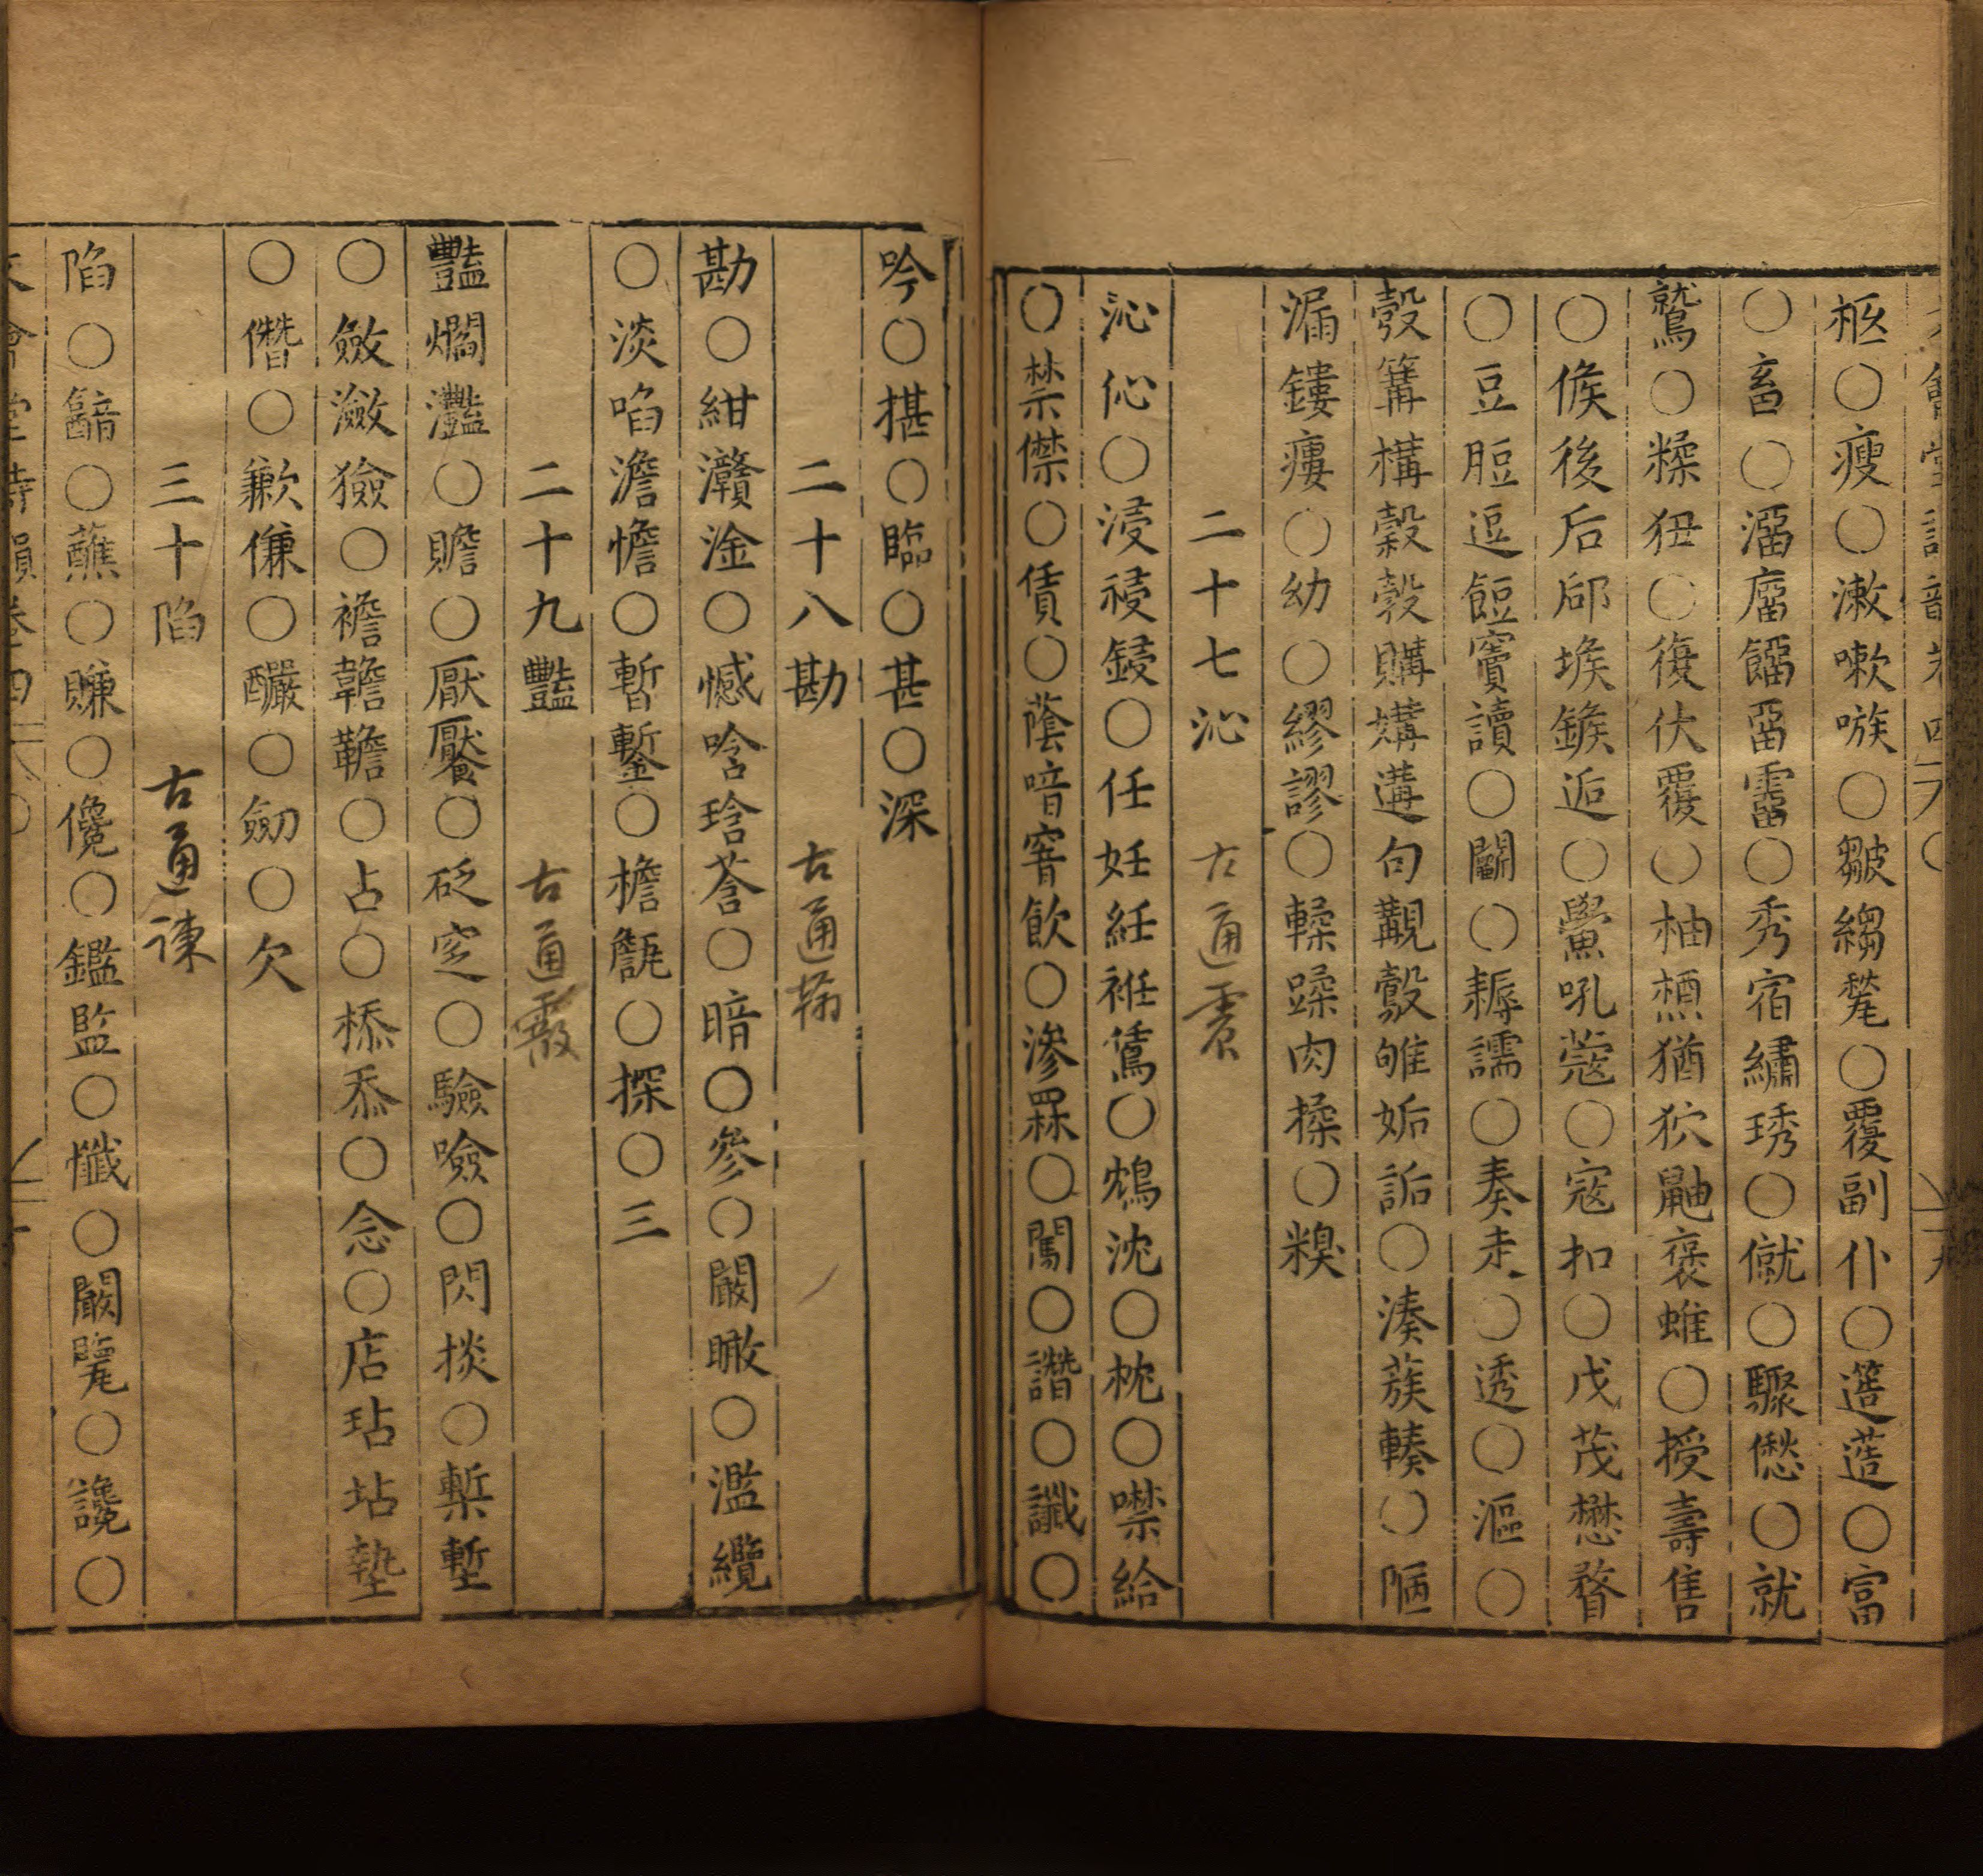 柩○瘦○漱嗽嗾○皺縐㲀○覆副仆○簉莲○富
○畜○溜廇餾畱霤○秀宿繡琇○僦○驟僽○就
鷲○糅狃○復伏覆○柚槱猶狖鼬褎蜼○授壽售
○候後后郈堠鍭逅○鱟吼蔻○寇扣○戊茂懋瞀
○豆脰逗餖竇讀○鬭○耨譳○奏走○透○漚○
彀篝構縠瞉購媾遘句覯鷇雊姤詬○湊蔟輳○陋
漏鏤瘻○幼○繆謬○輮蹂肉揉○糗
二十七沁 古通震
沁伈○浸祲鋟○任妊紝袵鵀○鴆沈○枕○噤紟
○禁僸○賃○蔭喑窨飲○滲罧○闖○譖○讖○
吟○揕○臨○甚○深
二十八勘 古通翰
勘○紺灨淦○憾唅琀莟○暗○參○闞瞰○濫纜
○淡啗澹憺○暫鏨○檐甔○探○三
二十九豔 古通霰
豔爓灩○贍○厭饜○砭窆○驗噞○閃掞○槧塹
○斂瀲獫○襜韂○占○㮇忝○念○店玷坫墊
○僭○歉傔○釅○劒○欠
三十陷 古通諫
陷○韽○蘸○賺○儳○鑑監○懺○闞覱○讒○